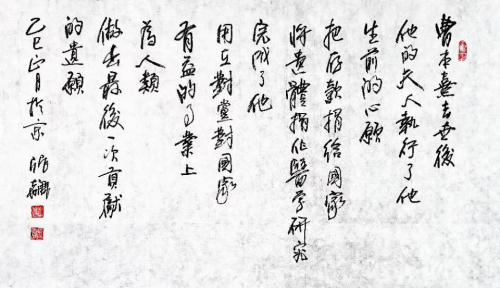 曹本熹去世後
他的夫人執行了他
生前的心願
把存款捐給國家
將遺體捐作醫學研究
完成了他
用在對黨對國家
有益的事業上
為人類
做出最後一次貢獻
的遺願
乙巳正月於京